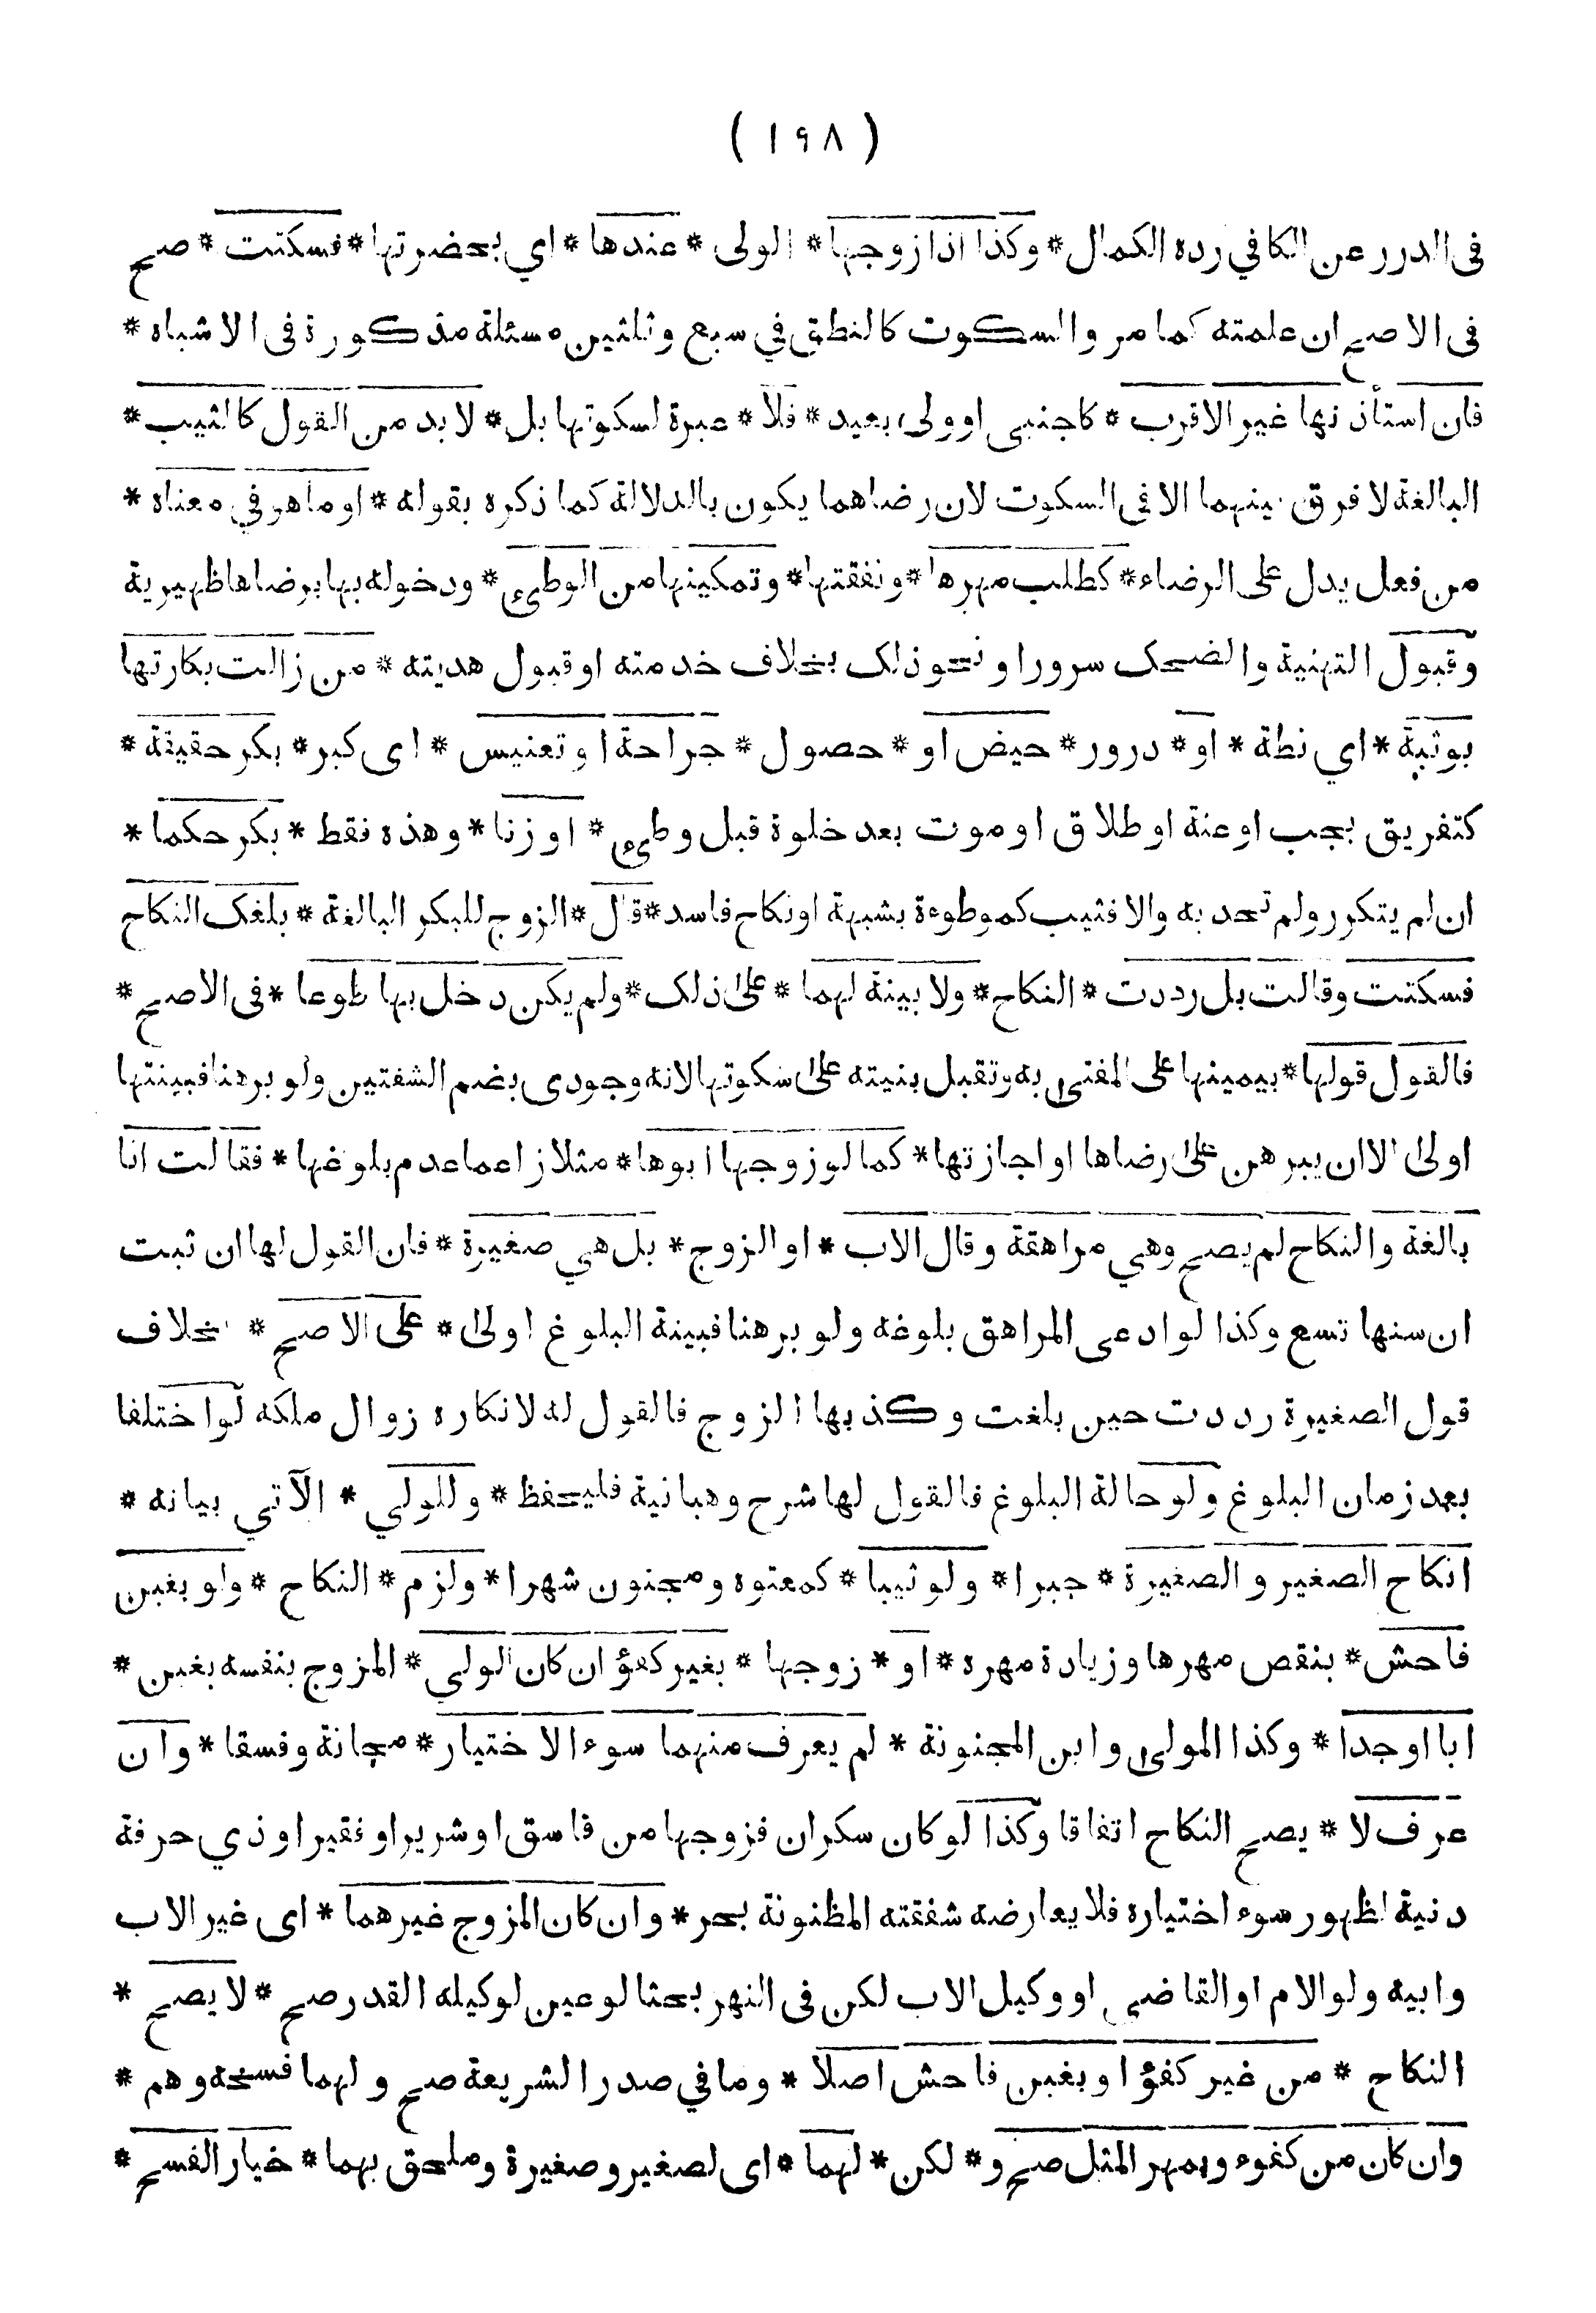 ( ١٩٨ )
فى الدرر عن الكافي رده الكمال * وكذا اذا زوجها * الولى * عندها * اي بحضرتها * فسكتت * صح
فى الاصح ان علمته كما مر والسكوت كالنطق في سبع وثلثين مسئلة مذكورة فى الاشباه *
فان استأذنها غير الاقرب * كاجنبى او ولى بعيد * فلا * عبرة لسكوتها بل * لا بد من القول كالثيب *
البالغة لا فرق بينهما الا فى السكوت لان رضاهما يكون بالدلالة كما ذكره بقوله * او ما هو في معناه *
من فعل يدل على الرضاء * كطلب مهرها * ونفقتها * وتمكينها من الوطىء * ودخوله بها برضاها ظهيرية
وقبول التهنية والضحك سرورا ونحو ذلك بخلاف خدمته او قبول هديته * من زالت بكارتها
بوثبة * اي نطة * او * درور * حيض او * حصول * جراحة او تعنيس * اى كبر * بكر حقيقة *
كتفريق بجب او عنة او طلاق او موت بعد خلوة قبل وطىء * او زنا * وهذه فقط * بكر حكما *
ان لم يتكرر ولم تحد به والا فثيب كموطوءة بشبهة او نكاح فاسد * قال * الزوج للبكر البالغة * بلغك النكاح
فسكتت وقالت بل رددت * النكاح * ولا بينة لهما * على ذلك * ولم يكن دخل بها طوعا * فى الاصح *
فالقول قولها * بيمينها على المفتى به وتقبل بنيته على سكوتها لانه وجودى بضم الشفتين ولو برهنا فبينتها
اولى الا ان يبرهن على رضاها او اجازتها * كما لو زوجها ابوها * مثلا زاعما عدم بلوغها * فقالت انا
بالغة والنكاح لم يصح وهي مراهقة وقال الاب * او الزوج * بل هي صغيرة * فان القول لها ان ثبت
ان سنها تسع وكذا لو ادعى المراهق بلوغه ولو برهنا فبينة البلوغ اولى * على الاصح * بخلاف
قول الصغيرة رددت حين بلغت وكذبها الزوج فالقول له لانكاره زوال ملكه لو اختلفا
بعد زمان البلوغ ولو حالة البلوغ فالقول لها شرح وهبانية فليحفظ * وللولي * الآتي بيانه *
انكاح الصغير والصغيرة * جبرا * ولو ثيبا * كمعتوه ومجنون شهرا * ولزم * النكاح * ولو بغبن
فاحش * بنقص مهرها وزيادة مهره * او * زوجها * بغير كفؤ ان كان الولي * المزوج بنفسه بغبن *
ابا او جدا * وكذا المولى وابن المجنونة * لم يعرف منهما سوء الاختيار * مجانة وفسقا * وان
عرف لا * يصح النكاح اتفاقا وكذا لو كان سكران فزوجها من فاسق او شرير او فقير او ذي حرفة
دنية لظهور سوء اختياره فلا يعارضه شفقته المظنونة بحر * وان كان المزوج غيرهما * اى غير الاب
وابيه ولو الام او القاضى او وكيل الاب لكن فى النهر بحثا لو عين لوكيله القدر صح * لا يصح *
النكاح * من غير كفؤ او بغبن فاحش اصلا * وما في صدر الشريعة صح ولهما فسخه وهم *
وان كان من كفوء وبمهر المثل صح و * لكن * لهما * اى لصغير وصغيرة وملحق بهما * خيار الفسح *